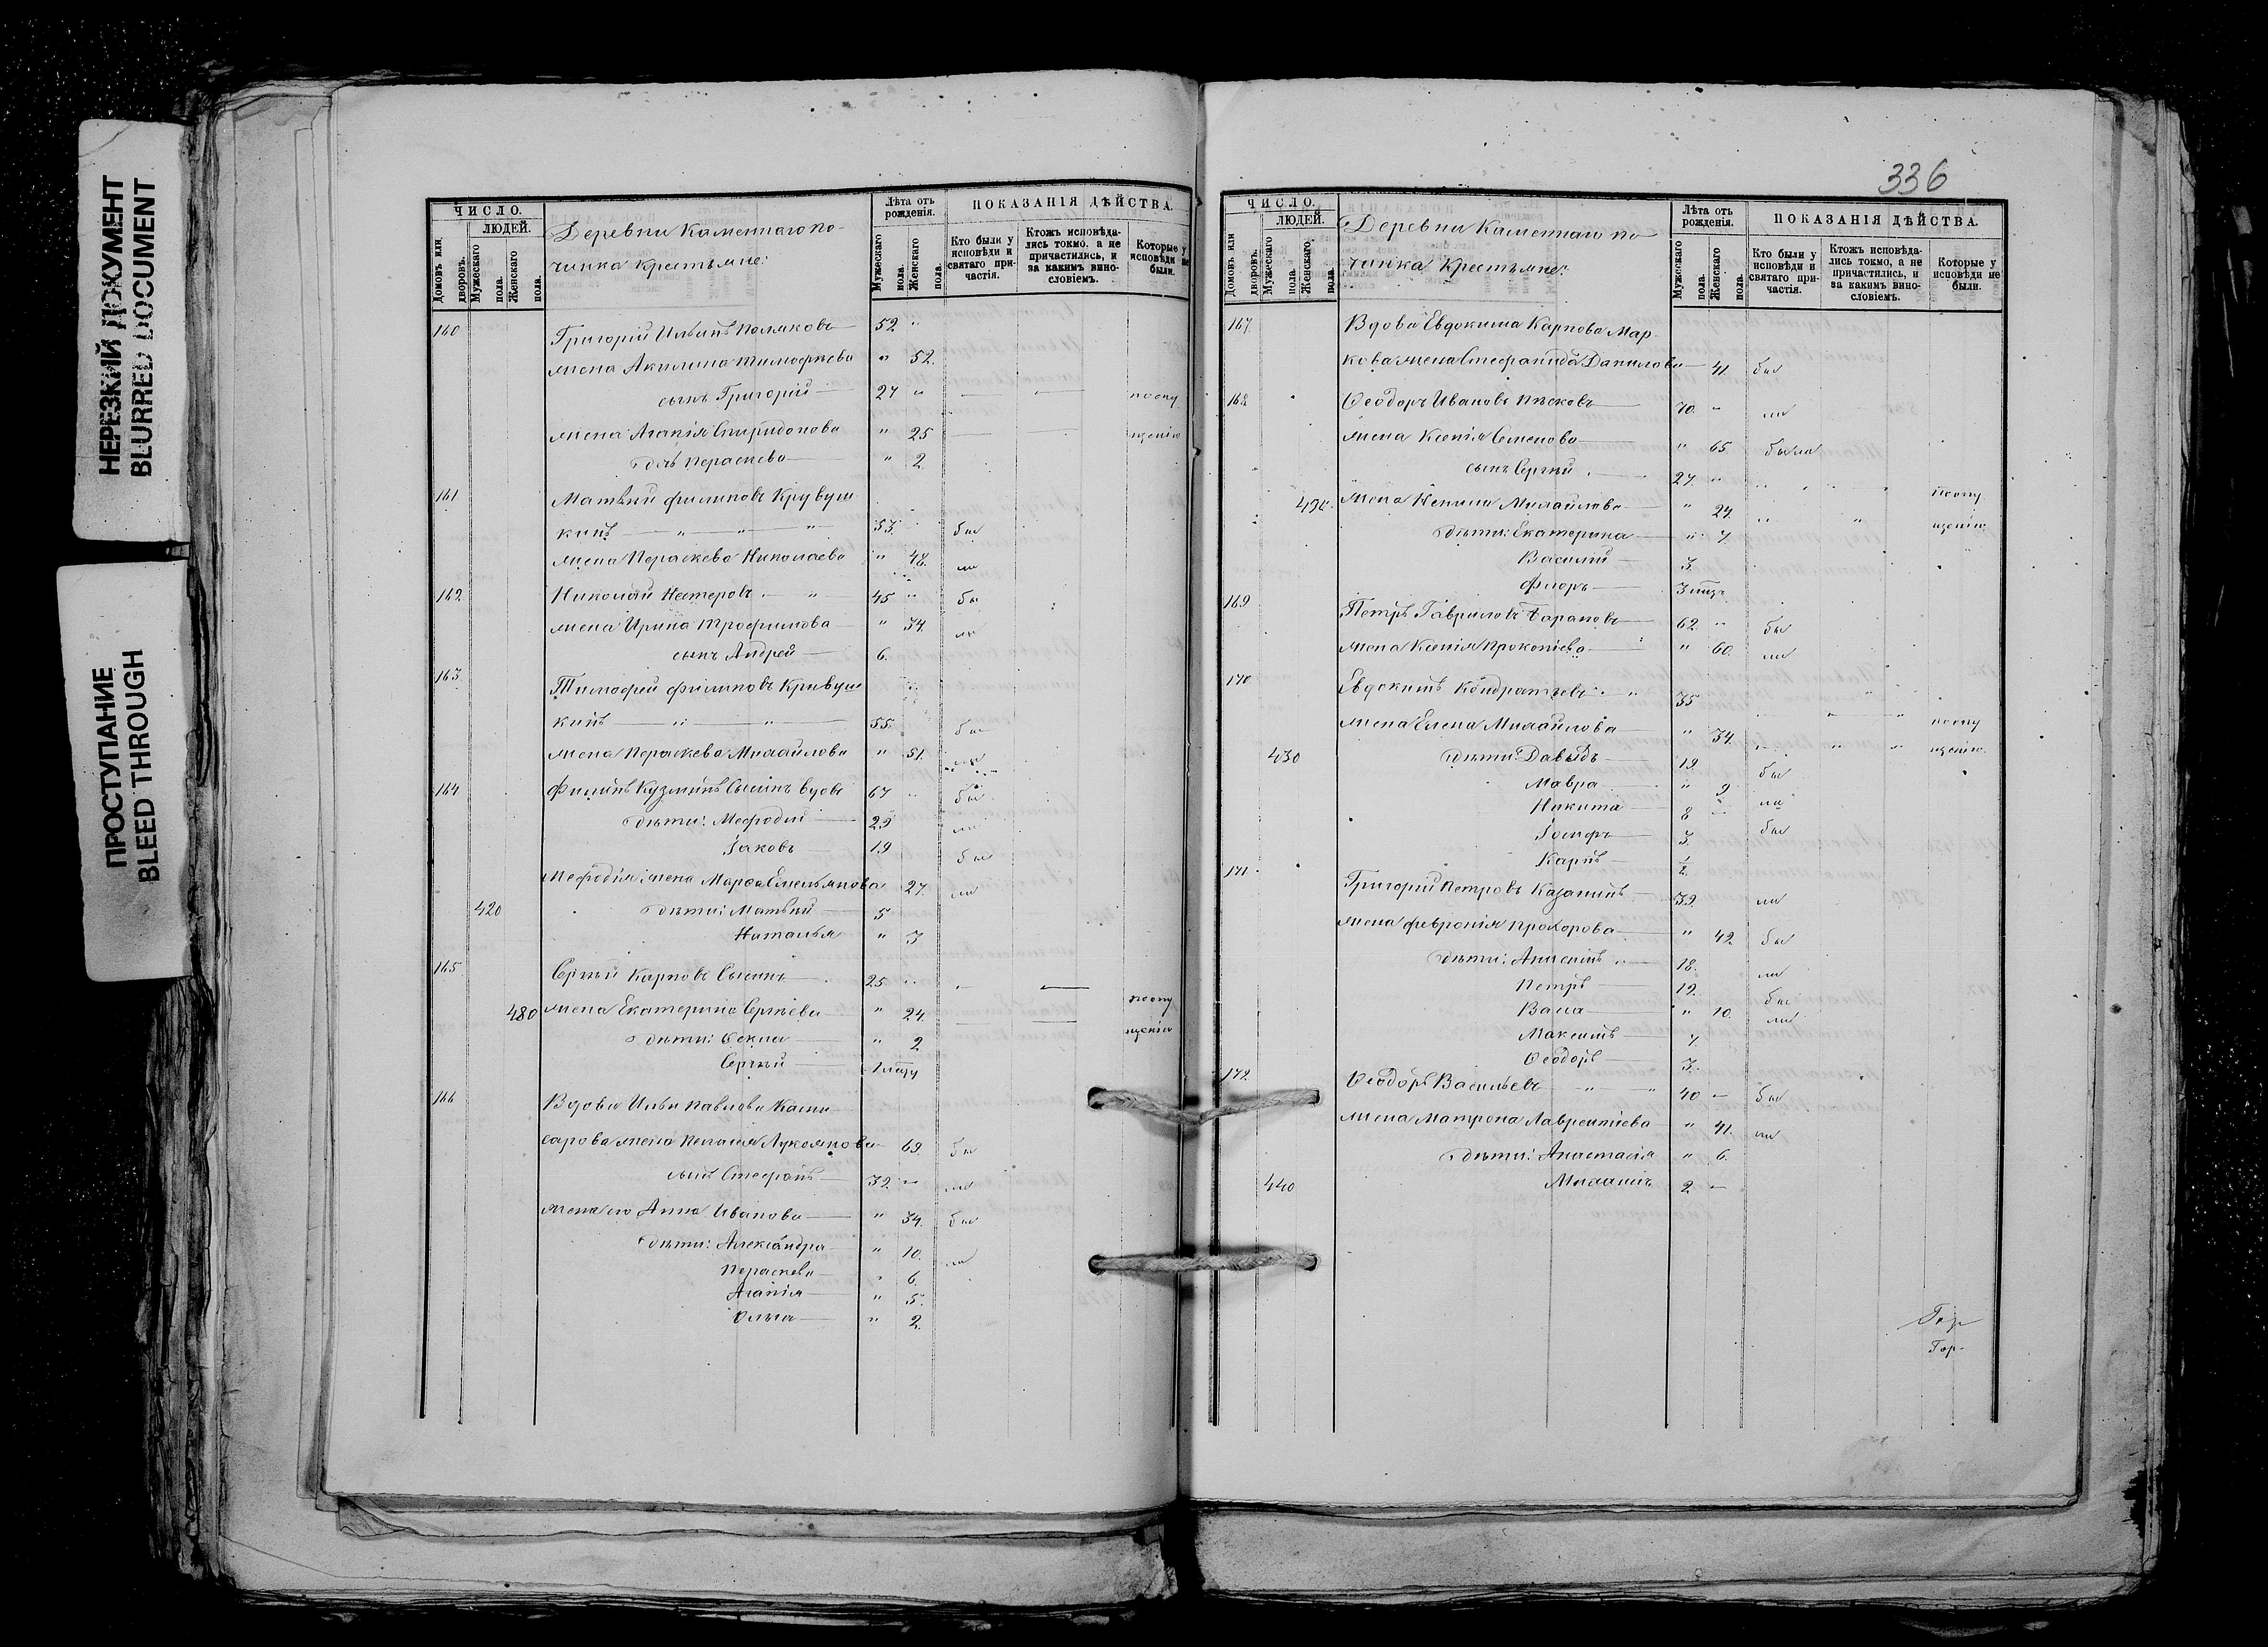 НЕРЕЗКИЙ ДОКУМЕНТ
BLURRED DOCUMENT
ПРОСТУПАНИЕ
BLEED THROUGH
ЧИСЛО.
ЛЮДЕЙ.
Домовъ или дворовъ.
Мужескаго пола.
Женскаго пола.
Деревни Каменнаго по-
чинка Крестьяне:
Лѣта отъ рожденія.
Мужескаго пола.
Женскаго пола.
ПОКАЗАНІЯ ДѢЙСТВА.
Кто были у исповѣди и святаго при-частія.
Ктожъ исповѣда-лись токмо, а не причастились, и за какимъ вино-словіемъ.
Которые у исповѣди не были.
160 Григорій Ильинъ Поляковъ 52 "
жена Акилина Тимофеева " 52.
сынъ Григорій 27 " по опу
жена Агапія Спиридонова " 25 щенію
дочь Пераскева " 2.
161 Матвѣй Филиповъ Кривуш
кинъ " " " 53. " бы
жена Пераскева Николаева " 48. ли
162 Николай Нестеровъ " 45 " бы
жена Ирина Трофимова " 34. ли
сынъ Андрей 6.
163 Тимофей Филиповъ Кривуш
кинъ " " 55. бы
жена Пераскева Михайлова " 51. ли
164 Филипъ Кузминъ Сысинъ вдовъ 67 " бы
дѣти: Мефодій 29 ли
Іаковъ 19 бы
Мефодія жена Марѳа Емельянова 27. ли
420 дѣти: Матвѣй 5
Наталья " 3
165 Сергѣй Карповъ Сысинъ 25 " по опу
480 жена Екатерина Сергѣева " 24. щенію
дѣти: Ѳекла " 2
Сергѣй 1 мѣсц
166 Вдова Ильи Павлова Кама
сарова жена Пелагія Лукоянова 69. бы
сынъ Стефанъ 32 " ли
жена его Анна Иванова " 34. бы
дѣти: Александра " 10. ли
Пераскева " 6.
Агапія " 5.
Ольга " 2.
336
ЧИСЛО.
ЛЮДЕЙ.
Домовъ или дворовъ.
Мужескаго пола.
Женскаго пола.
Деревни Каменнаго по
чинка Крестьяне:
Лѣта отъ рожденія.
Мужескаго пола.
Женскаго пола.
ПОКАЗАНІЯ ДѢЙСТВА.
Кто были у исповѣди и святаго при-частія.
Ктожъ исповѣда-лись токмо, а не причастились, и за какимъ вино-словіемъ.
Которые у исповѣди не были.
167 Вдова Евдокима Карпова Мар
кова жена Стефанида Данилова 41. бы
168 Ѳеодоръ Ивановъ Пѣсковъ 70. " ли
жена Ксенія Семенова " 65 были
сынъ Сергѣй 27. " по опу
490. жена Ксенія Михайлова " 24. щенію
дѣти: Екатерина " 7.
Василій 3.
Флоръ 3 мѣсц
169 Петръ Гавриловъ Барановъ 62. " бы
жена Ксенія Прокопіева " 60. ли
170 Евдокимъ Кондратьевъ " 35 по опу
жена Елена Михайлова " 34. щенію.
430 дѣти: Давыдъ 12. бы
Мавра " 9 ли
Никита 8 бы
Іосифъ 3.
Карпъ ½
171 Григорій Петровъ Казанинъ 39. ли
жена Февронія Прохорова " 42. бы
дѣти: Анисимъ 18. ли
Петръ 12. бы
Васса " 10. ли
Максимъ 7.
Ѳеодоръ 3.
172 Ѳеодоръ Васильевъ " " 40 бы
жена Матрона Лаврентіева " 41. ли
дѣти: Анастасія " 6.
440 Михаилъ 2
Гор
Гор-